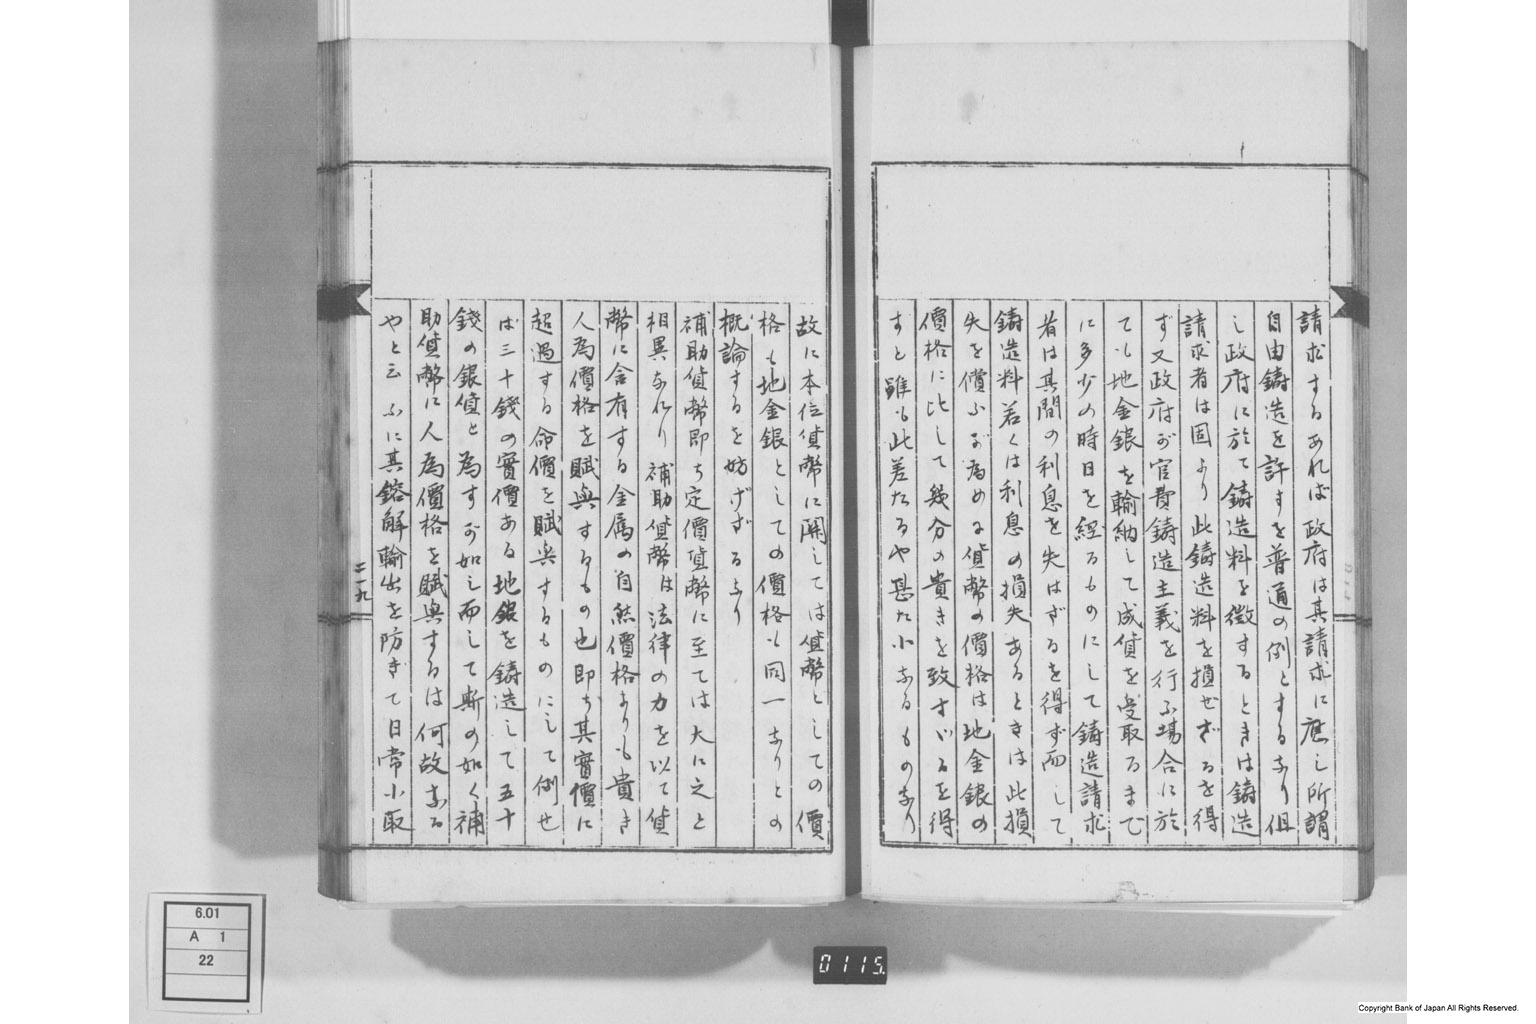 請求するあれば政府は其請求に應し所謂
自由鑄造を許すを普通の例とするなり但
し政府に於て鑄造料を徴するときは鑄造
請求者は固より此鑄造料を損せざるを得
ず又政府が官費鑄造主義を行ふ場合に於
ても地金銀を輸納して成貨を受取るまで
に多少の時日を經るものにして鑄造請求
者は其間の利息を失はざるを得ず而して
鑄造料若くは利息の損失あるときは此損
失を償ふが為める貨幣の價格は地金銀の
價格に比して幾分の貴きを致すざるを得
ずと雖も此差たるや甚た小なるものなり
故に本位貨幣に関しては貨幣としての價
格も地金銀としての價格も同一なりとの
概論するを妨げざるなり
補助貨幣即ち定價貨幣に至ては大に之と
相異なれり補助貨幣は法律の力を以て貨
幣に含有する金属の自然價格よりも貴き
人為價格を賦與するもの也即ち其實價に
超過する命價を賦與するものにして例せ
ば三十錢の實價ある地銀を鑄造して五十
錢の銀貨と為すが如し而して斯の如く補
助貨幣に人為價格を賦與するは何故なる
やと云ふに其鎔解輸出を防ぎて日常小取
二一九
6.01
A 1
22
0115.
Copyright Bank of Japan All Rights Reserved.